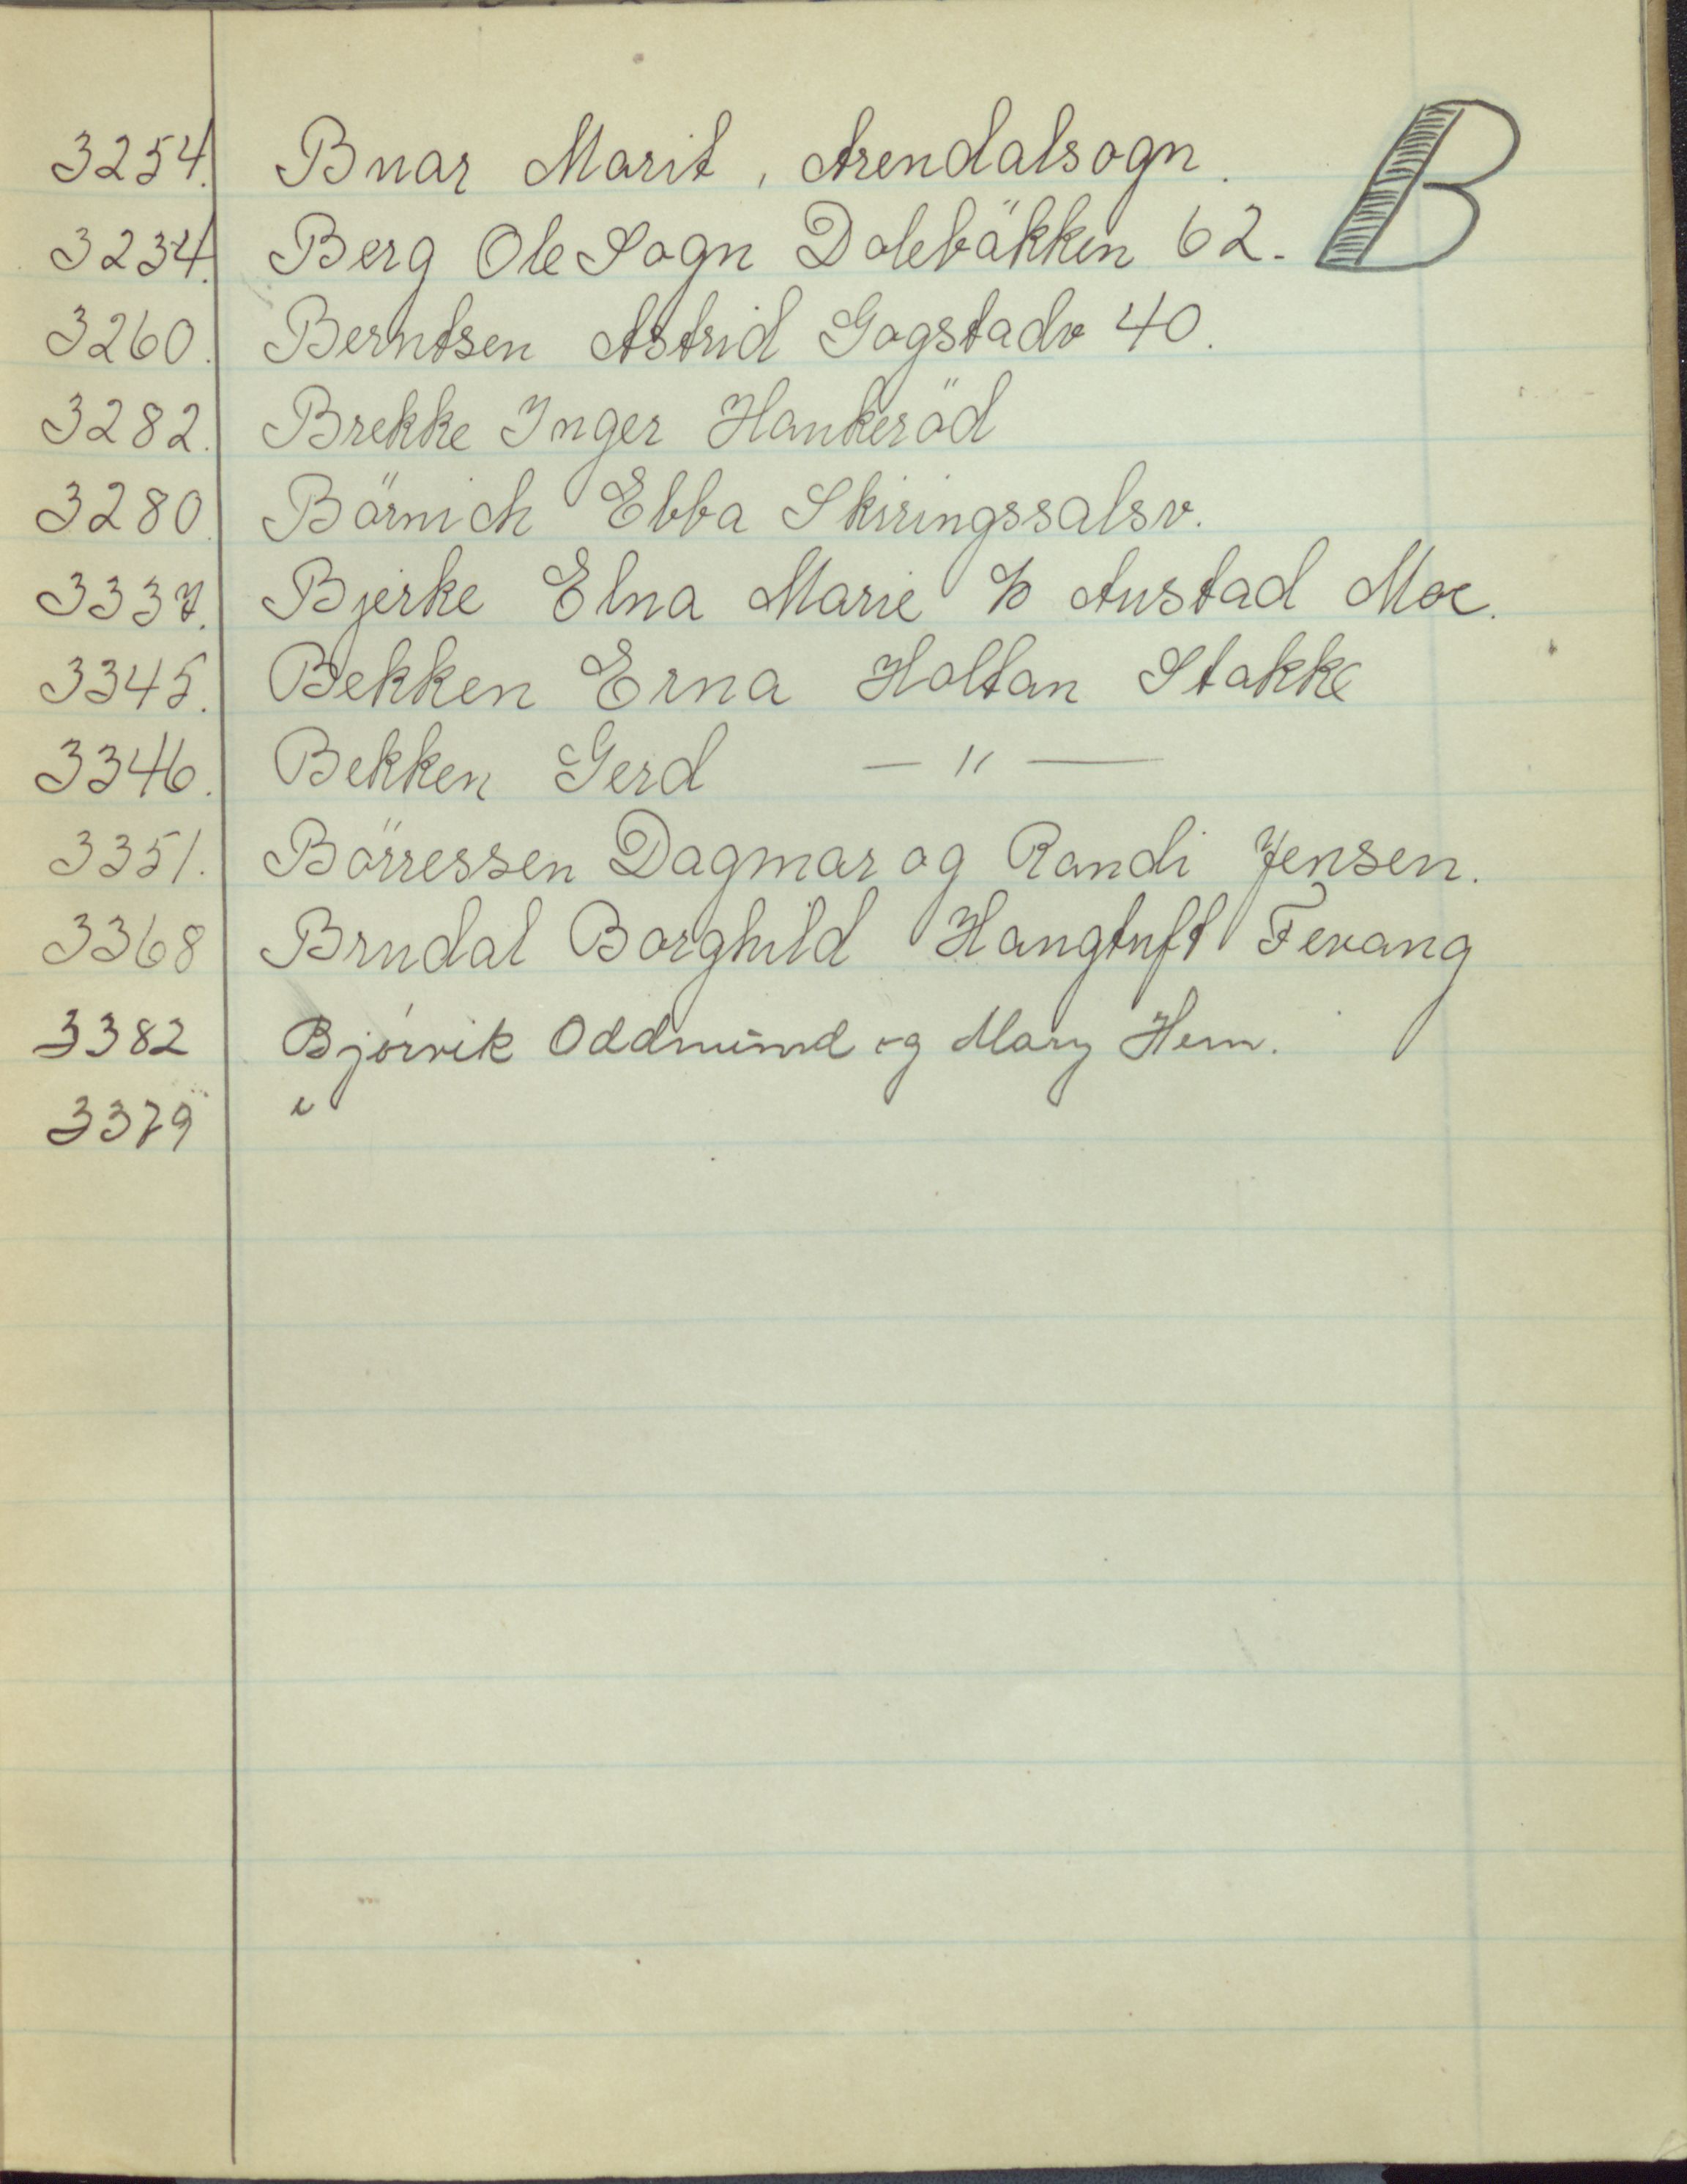 B
3254. Buar Marit, Arendalsogn.
3234. Berg Ole Sogn Dølebäkken 62.
3260. Berntsen Astrid Gogstadv 40.
3282. Brekke Inger Haukeröd
3280. Börnich Ebba Skiringssalsv.
3337. Bjerke Elna Marie % Austad Moe.
3345. Bekken Erna Holtan Stokke
3346. Bekken Gerd — " —
3351. Börressen Dagmar og Randi Jensen.
3368 Brudal Borghild Haugtuft Fevang
3382 Bjórvik Oddmund og Mary Hem.
3379 "